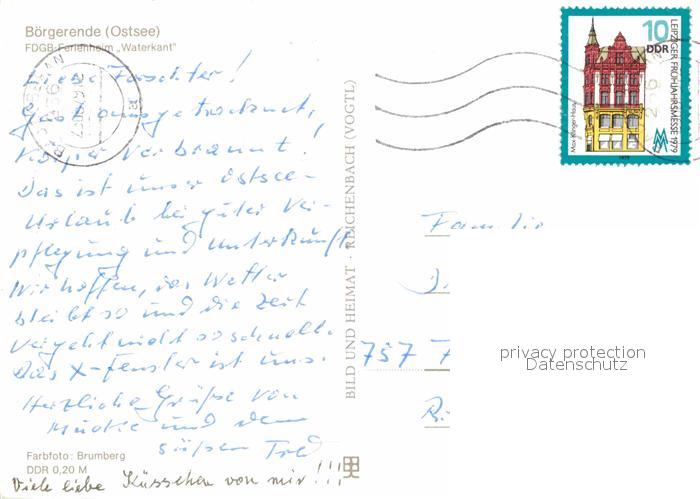 Börgerende (Ostsee)
FDGB-Ferienheim „Waterkant"
Liebe Forschter!
Ganz ausgetrocknet,
Körper verbrannt!
Das ist unser Ostsee-
Urlaub bei guter Ver-
pflegung und Unterkunft
Wir hoffen, das Wetter
bleibt so und die Zeit
vergeht nicht so schnell.
Das X-Fenster ist uns.
Herzliche Grüße von
und dem
süßen
Farbfoto: Brumberg
DDR 0,20 M
Viele liebe Küsschen von mir!!!
BILD UND HEIMAT · REICHENBACH (VOGTL)
10
DDR
LEIPZIGER FRÜHJAHRSMESSE 1979
Max-Klinger-Haus
1979
Familie
757 7
privacy protection
Datenschutz